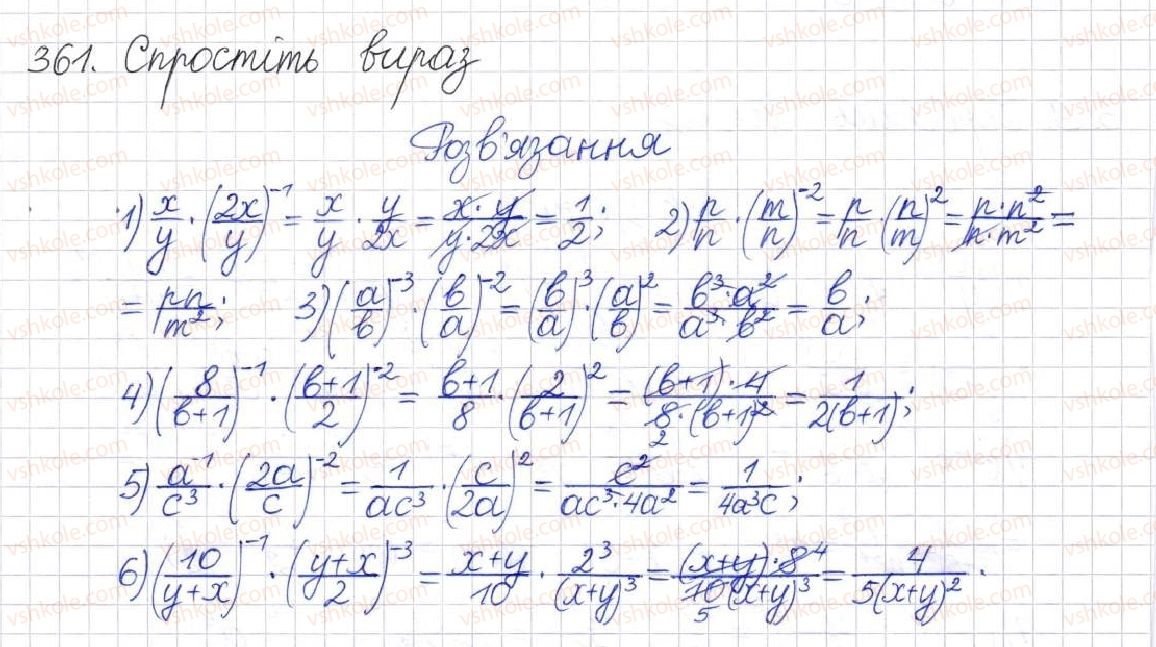 361. Спростіть вираз
Розв'язання
1) x/y · (2x/y)^-1 = x/y · y/2x = x·y/y·2x = 1/2; 2) p/n · (m/n)^-2 = p/n · (n/m)^2 = p·n^2/n·m^2 =
= pn/m^2; 3) (a/b)^-3 · (b/a)^-2 = (b/a)^3 · (a/b)^2 = b^3·a^2/a^3·b^2 = b/a;
4) (8/b+1)^-1 · (b+1/2)^-2 = b+1/8 · (2/b+1)^2 = (b+1)·4/8·(b+1)^2 = 1/2(b+1);
5) a^-1/c^3 · (2a/c)^-2 = 1/ac^3 · (c/2a)^2 = c^2/ac^3·4a^2 = 1/4a^3c;
6) (10/y+x)^-1 · (y+x/2)^-3 = x+y/10 · 2^3/(x+y)^3 = (x+y)·8 4/10 5(x+y)^3 = 4/5(x+y)^2.